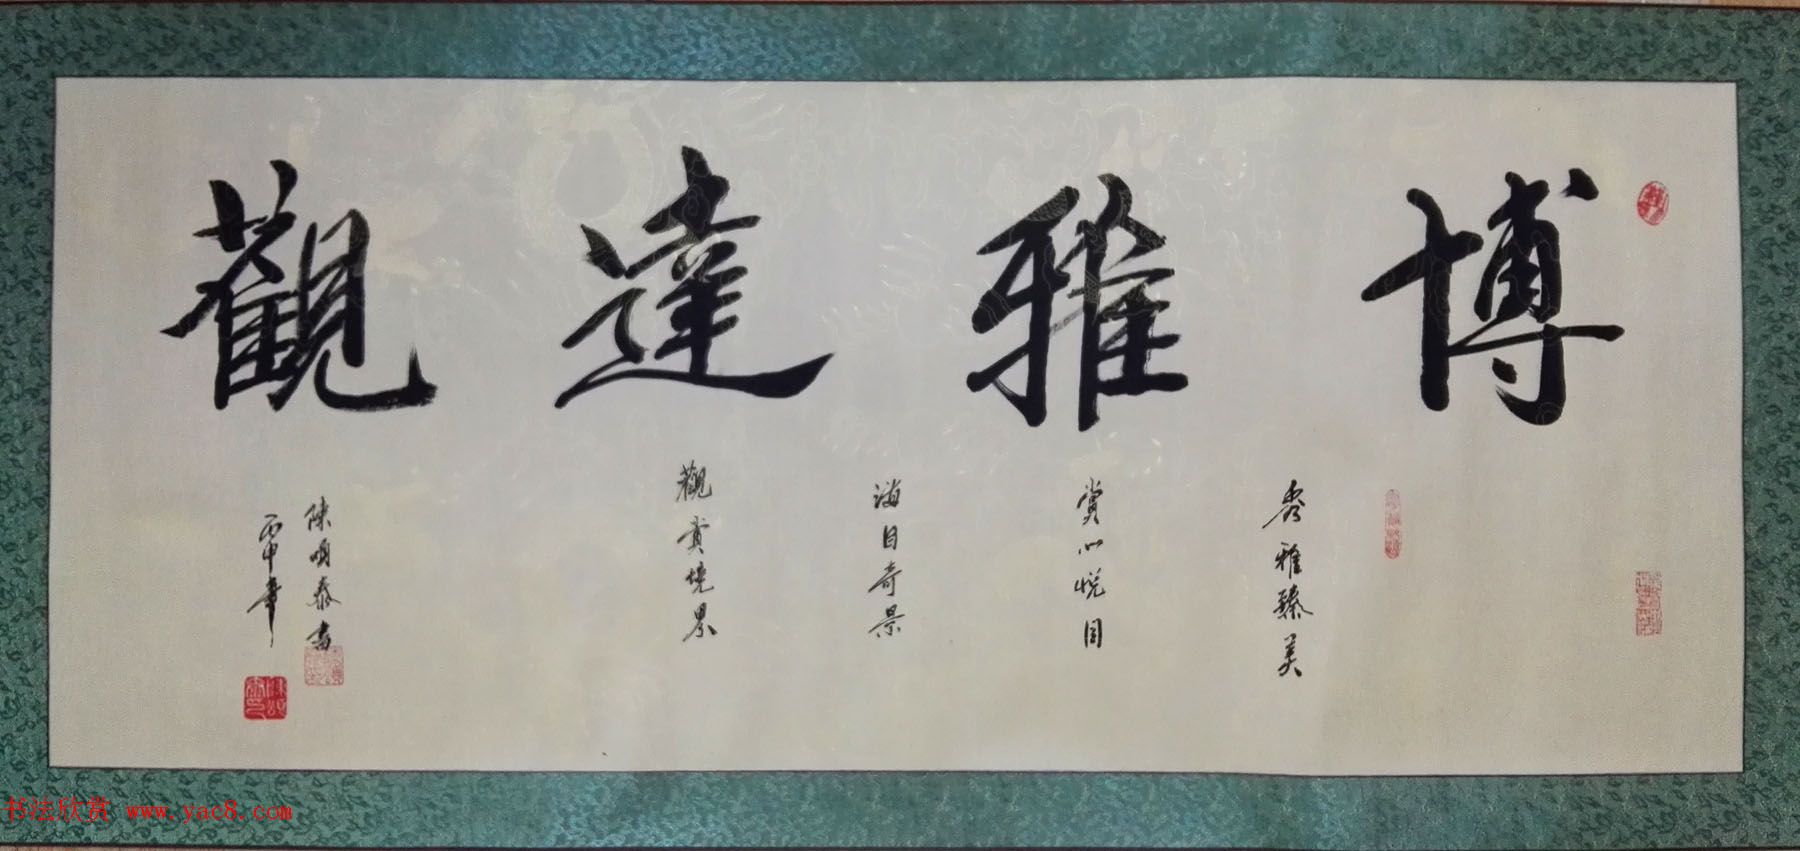 博雅達觀
秀雅臻美
賞心悅目
滿目奇景
觀賞境界
陳頌泰書
丙申年
书法欣赏 www.yac8.com